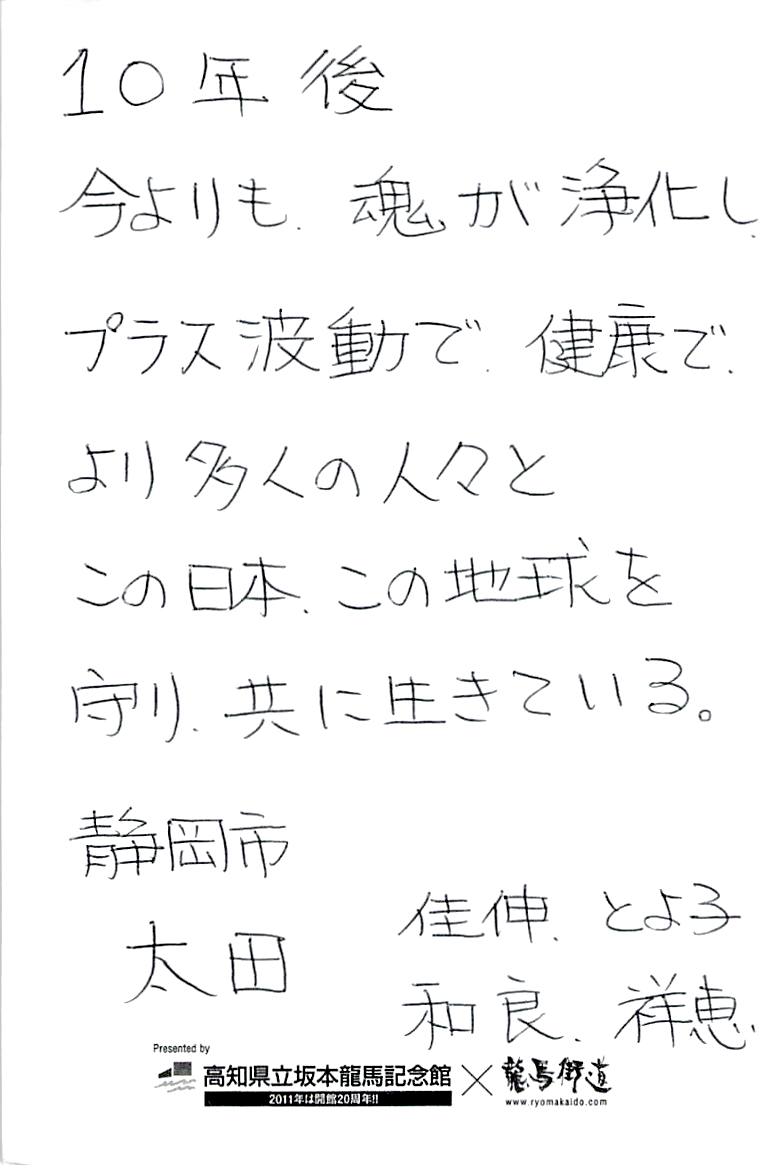 10年後
今よりも、魂が浄化し、
プラス波動で、健康で、
より多くの人々と
この日本、この地球を
守り、共に生きている。
静岡市
太田
佳伸、とよ子
和良、祥恵
Presented by
高知県立坂本龍馬記念館 × 龍馬街道
2011年は開館20周年!!
www.ryomakaido.com